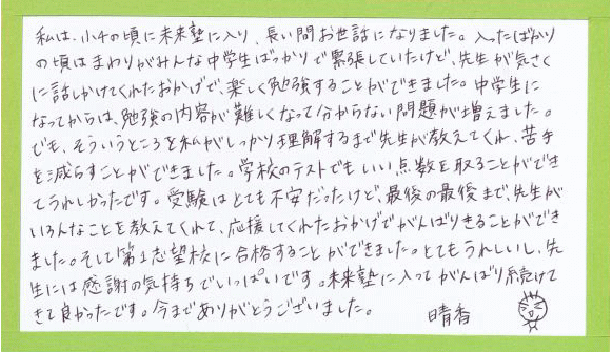 私は、小4の頃に未来塾に入り、長い間お世話になりました。入ったばかり
の頃はまわりがみんな中学生ばっかりで緊張していたけど、先生が気さく
に話しかけてくれたおかげで、楽しく勉強することができました。中学生に
なってからは、勉強の内容が難しくなって分からない問題が増えました。
でも、そういうところを私がしっかり理解するまで先生が教えてくれ、苦手
を減らすことができました。学校のテストでもいい点数を取ることができ
てうれしかったです。受験はとても不安だったけど、最後の最後まで、先生が
いろんなことを教えてくれて、応援してくれたおかげでがんばりきることができ
ました。そして第1志望校に合格することができました。とてもうれしいし、先
生には感謝の気持ちでいっぱいです。未来塾に入ってがんばり続けて
きて良かったです。今までありがとうございました。
晴香